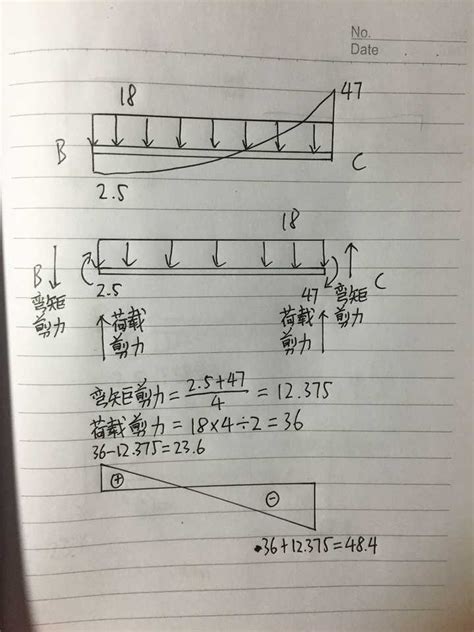 No.
Date
18
47
B
C
2.5
18
B
2.5
47
C
弯矩
剪力
荷载
剪力
荷载
剪力
弯矩
剪力
弯矩剪力=2.5+47/4=12.375
荷载剪力=18×4÷2=36
36-12.375=23.6
+
-
36+12.375=48.4